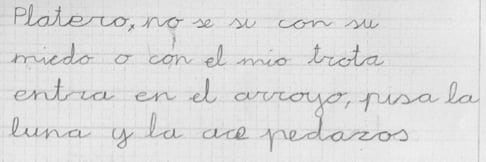 Platero, no se si con su
miedo o con el mio trota
entra en el arroyo, pisa la
luna y la ace pedazos